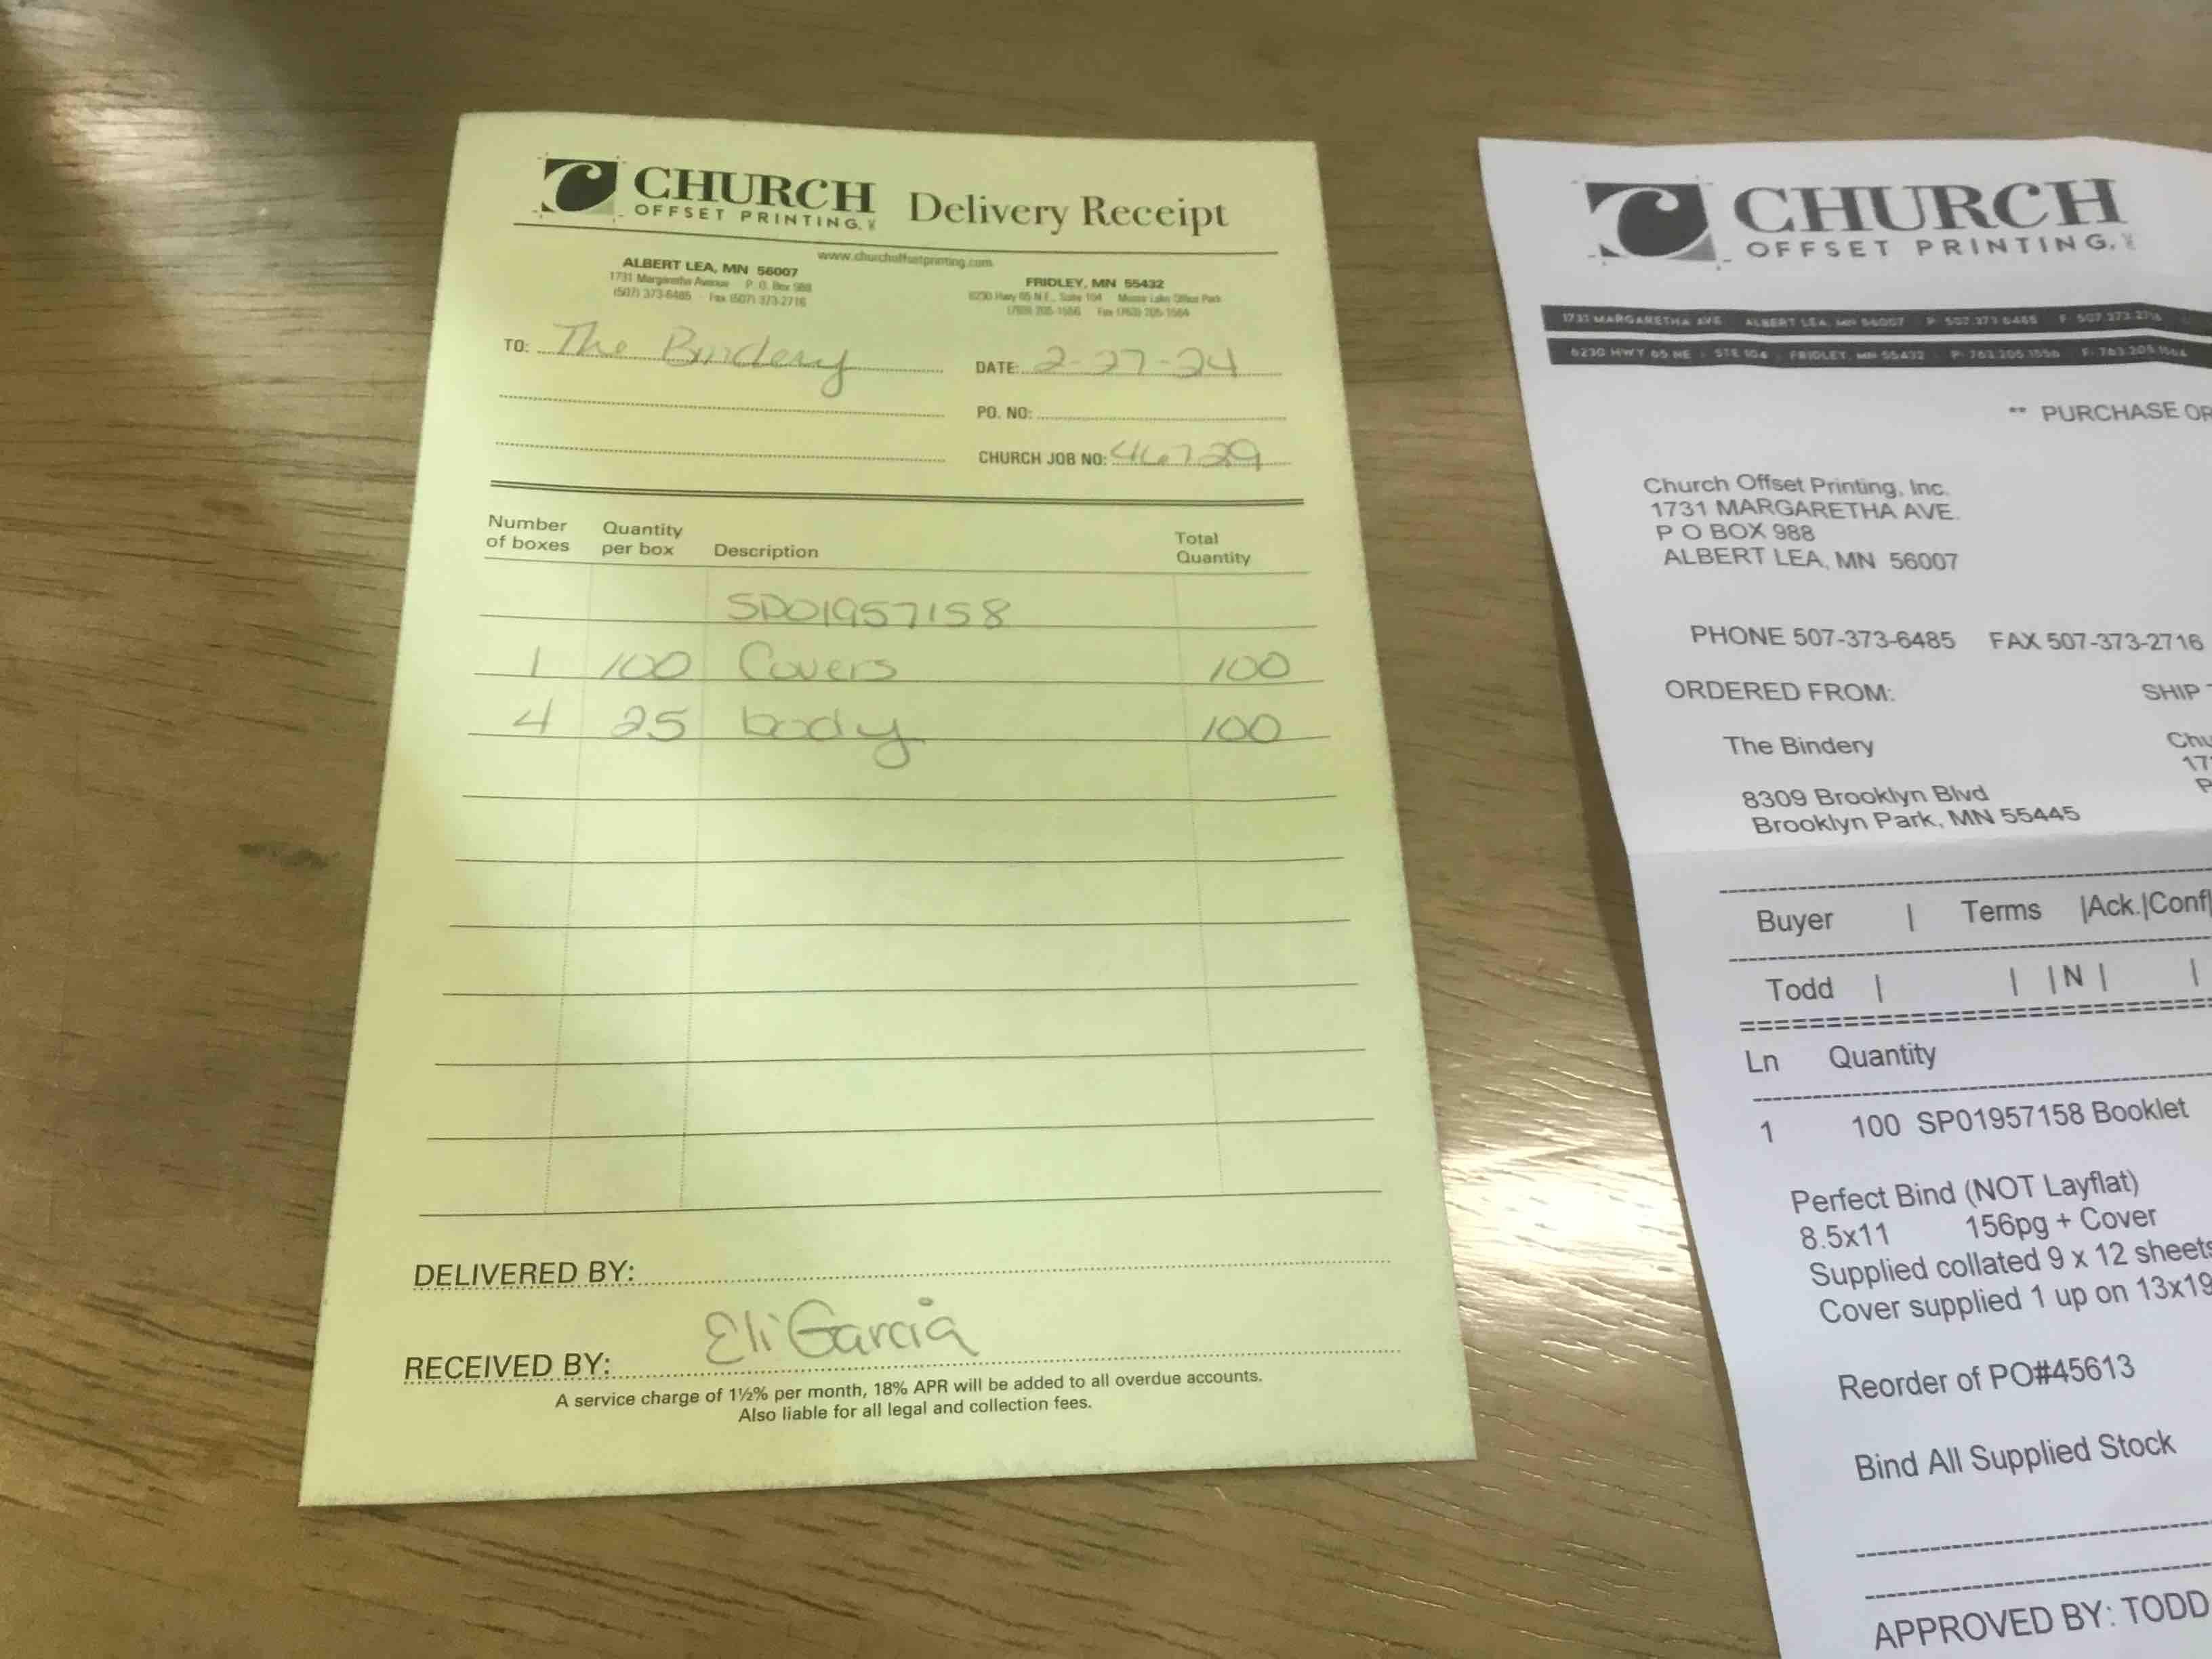 CHURCH
OFFSET PRINTING,
Delivery Receipt
www.churchoffsetprinting.com
ALBERT LEA, MN 56007
1731 Margaretha Avenue P. O. Box 988
(507) 373-6485 Fax (507) 373-2716
FRIDLEY, MN 55432
6230 Hwy 65 N.E., Suite 104 Moore Lake Office Park
(763) 205-1556 Fax (763) 205-1564
TO: The Bindery
DATE: 2-27-24
PO. NO:
CHURCH JOB NO: 46729
Number of boxes
Quantity per box
Description
Total Quantity
SP01957158
1 100 Covers 100
4 25 body 100
DELIVERED BY:
RECEIVED BY: Eli Garcia
A service charge of 1½% per month, 18% APR will be added to all overdue accounts.
Also liable for all legal and collection fees.
CHURCH
OFFSET PRINTING,
1731 MARGARETHA AVE ALBERT LEA, MN 56007 P: 507.373.6485 F: 507.373.2716
6230 HWY 65 NE STE 104 FRIDLEY, MN 55432 P: 763.205.1556 F: 763.205.1564
** PURCHASE OR
Church Offset Printing, Inc.
1731 MARGARETHA AVE.
P O BOX 988
ALBERT LEA, MN 56007
PHONE 507-373-6485 FAX 507-373-2716
ORDERED FROM: SHIP
The Bindery Chu
17
8309 Brooklyn Blvd P
Brooklyn Park, MN 55445
Buyer | Terms |Ack.|Conf|
Todd | | |N| |
Ln Quantity
1 100 SP01957158 Booklet
Perfect Bind (NOT Layflat)
8.5x11 156pg + Cover
Supplied collated 9 x 12 sheets
Cover supplied 1 up on 13x19
Reorder of PO#45613
Bind All Supplied Stock
APPROVED BY: TODD